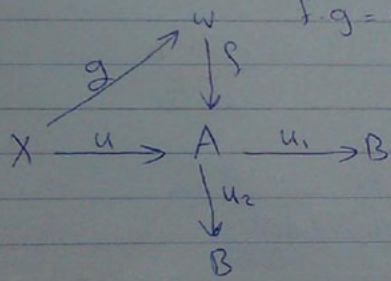 w
f.g =
g
ρ
X u A u₁ B
u₂
B